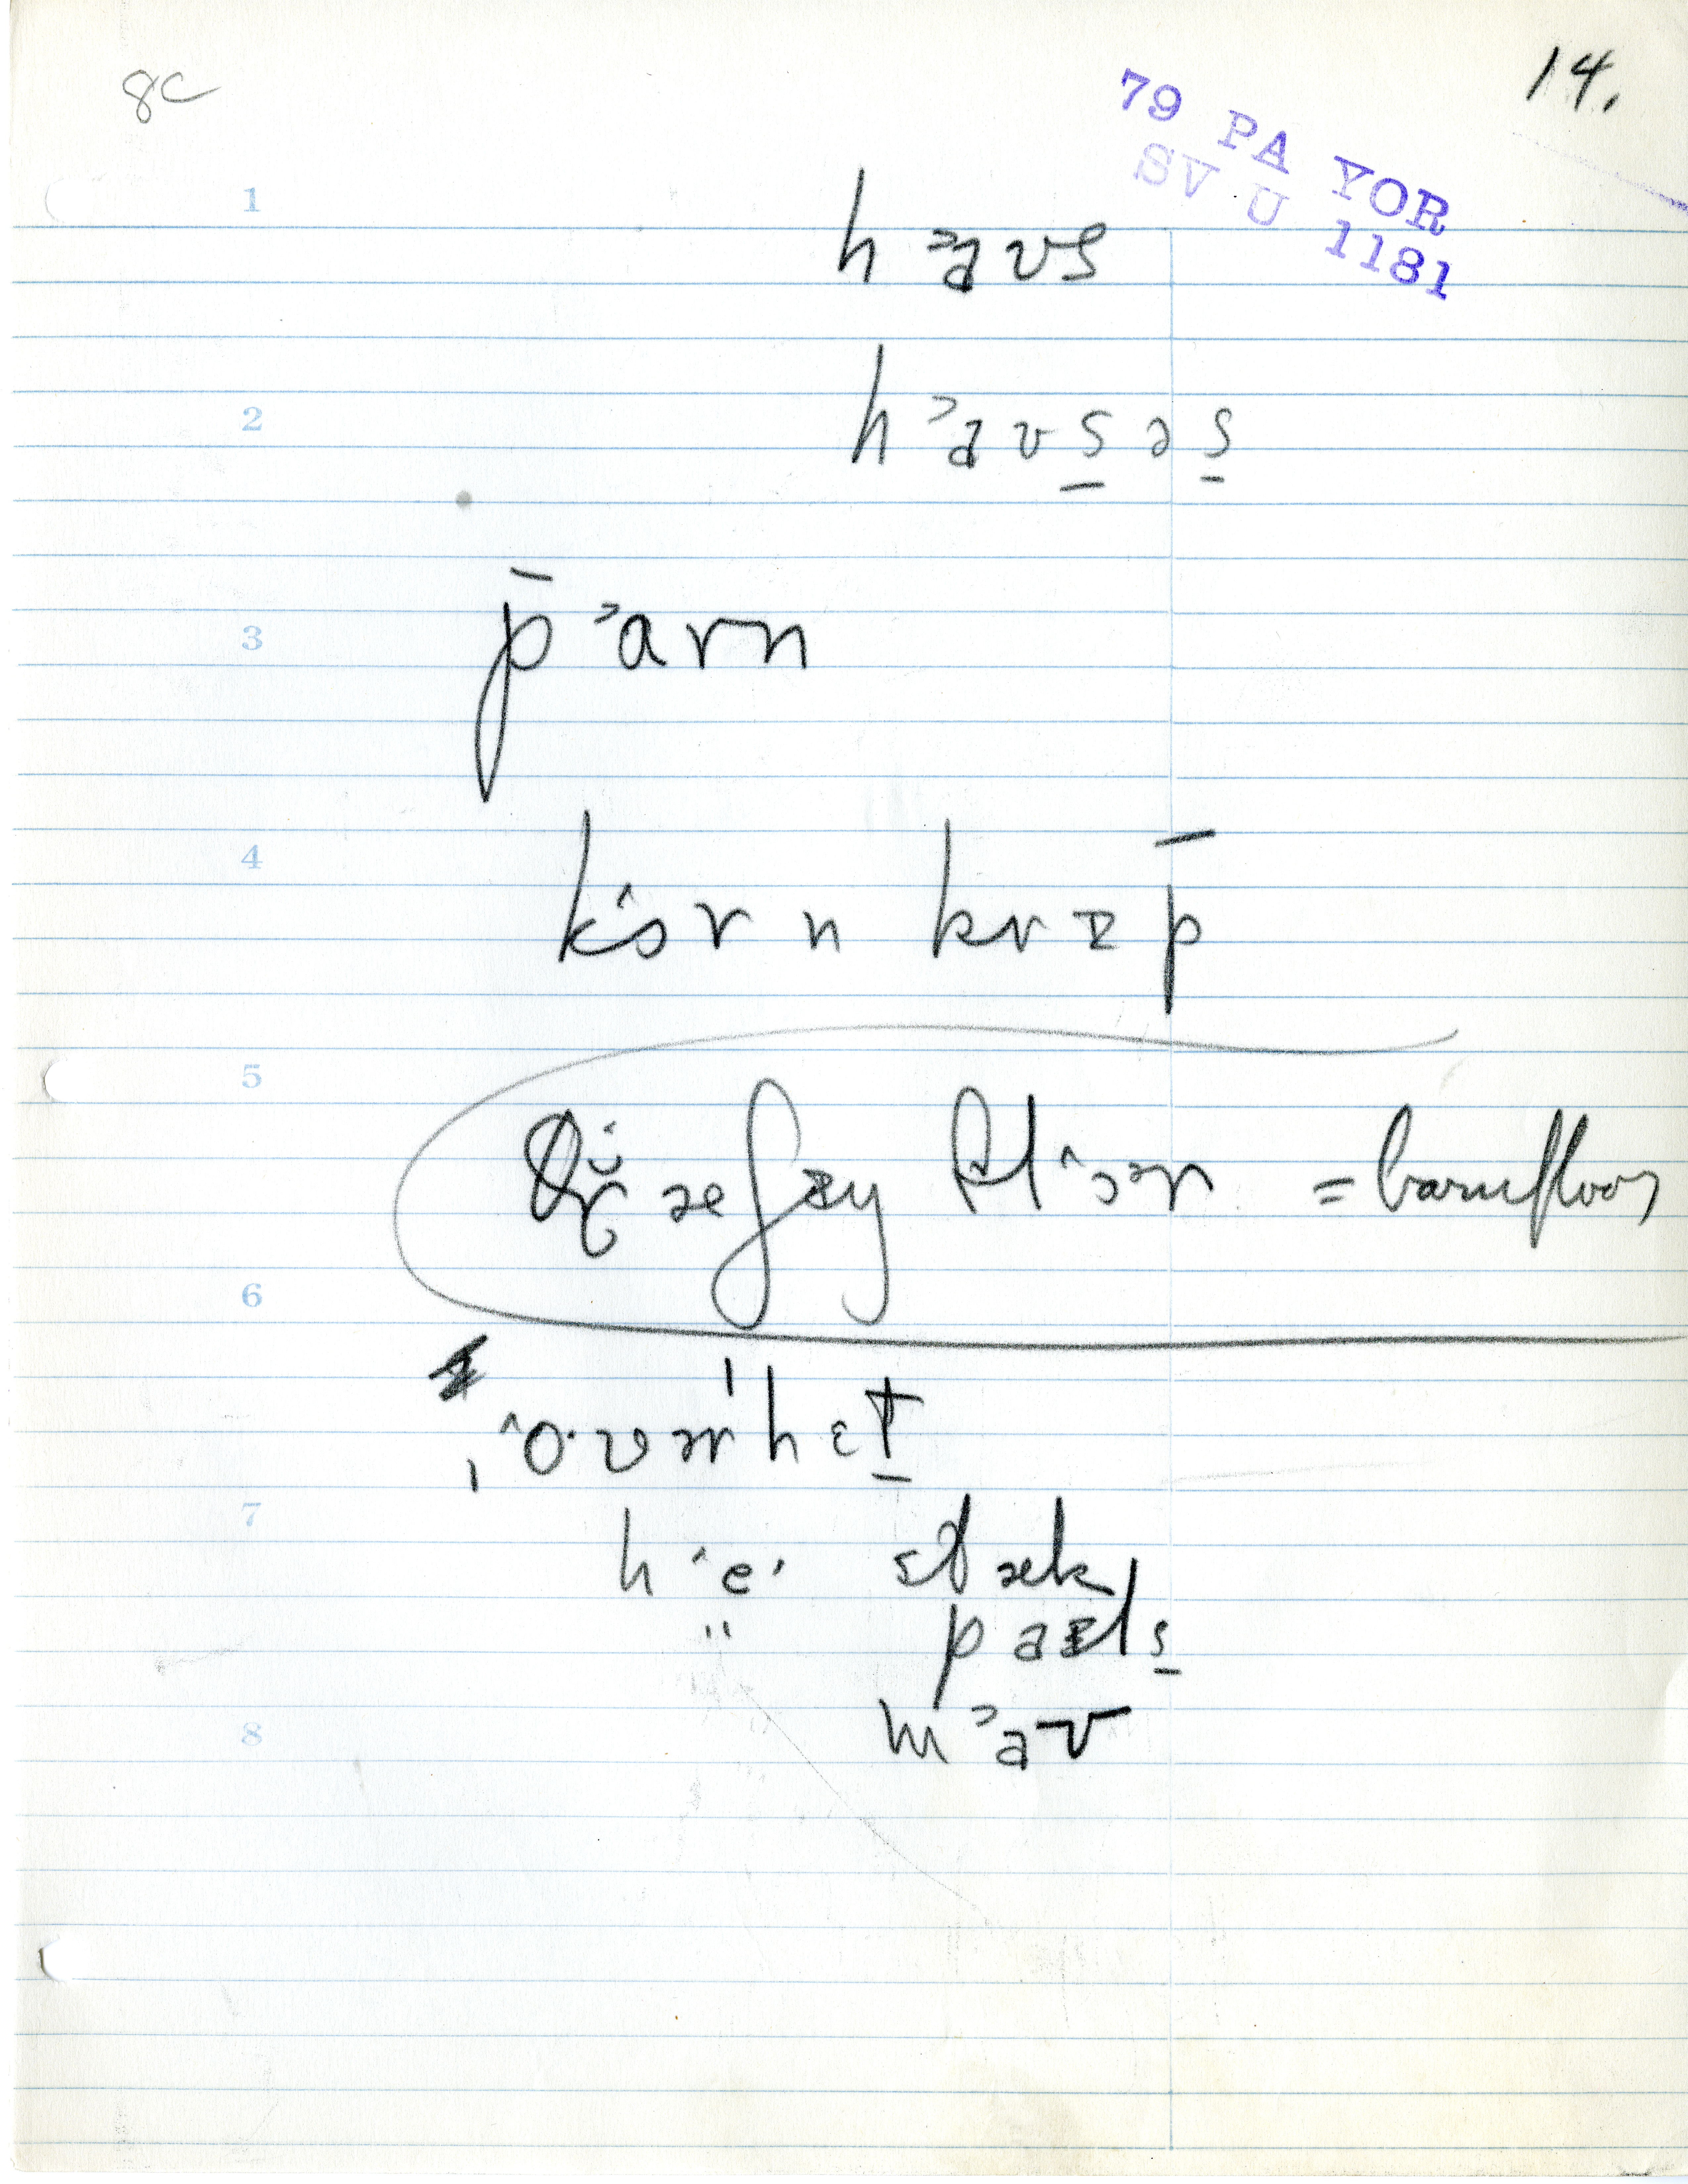 8c
14.
79 PA YOR
SV U 1181
1
h ˃aʊs
2
h ˃aʊs̠əs̠
3
p̄ ˃arn
4
k ˄ɔrn krɪp̄
5
= barnfloor
6
ˌ˄o·vɚˈhɛt̠
7
h ˄e·
" paɪls̠
8
m ˃aʊ